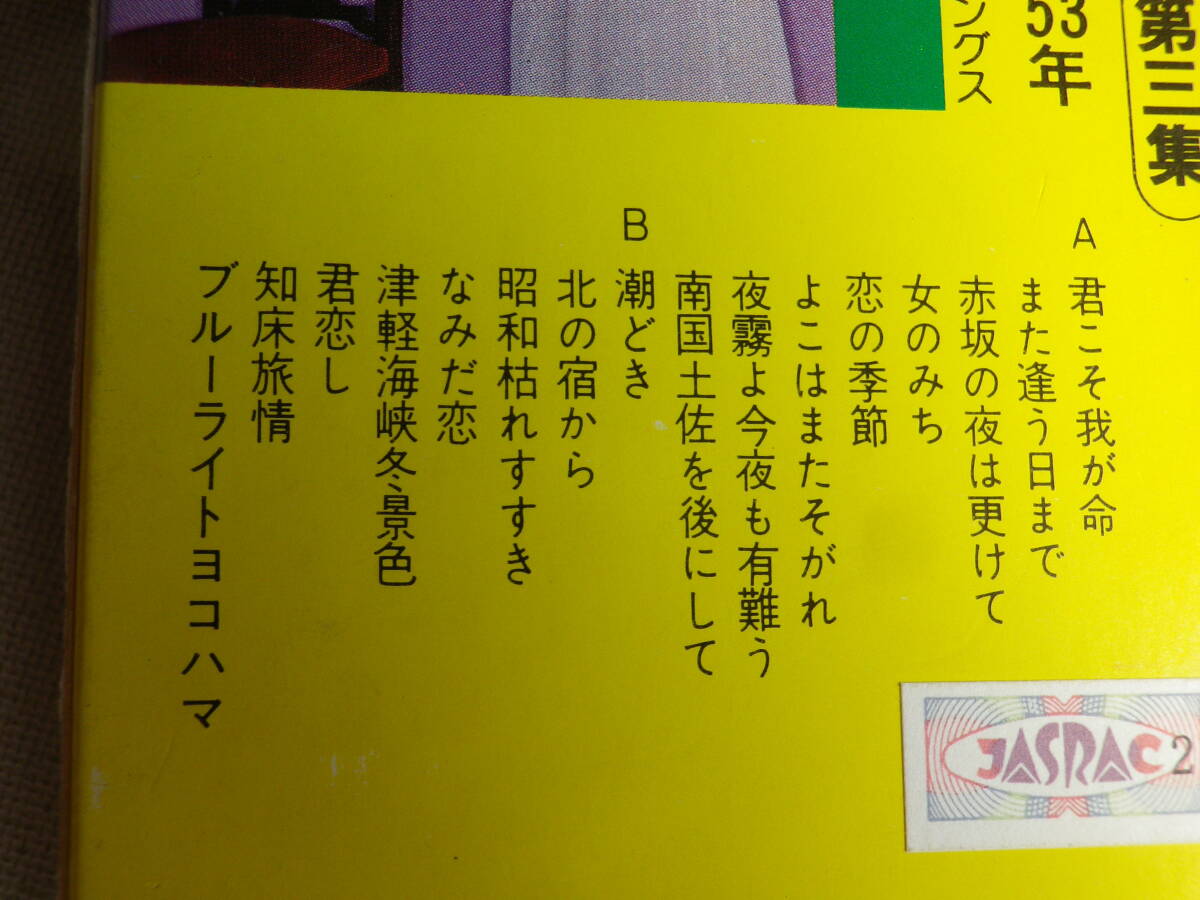 第三集
53年
ングス
A
君こそ我が命
また逢う日まで
赤坂の夜は更けて
女のみち
恋の季節
よこはまたそがれ
夜霧よ今夜も有難う
南国土佐を後にして
B
潮どき
北の宿から
昭和枯れすすき
なみだ恋
津軽海峡冬景色
君恋し
知床旅情
ブルーライトヨコハマ
JASRAC 2